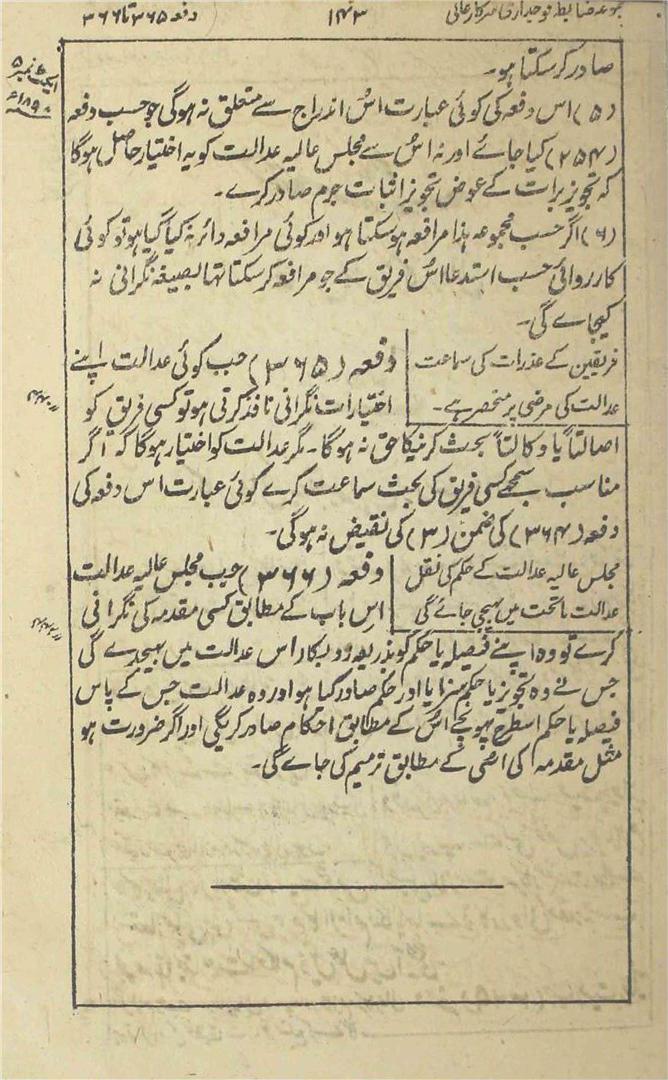 مجموعہ ضابطہ فوجداری سرکار عالی ۱۴۳ دفعہ ۳۶۵ تا ۳۶۶
ایکٹ نمبر ۵
صادر کر سکتا ہو۔
(۵) اس دفعہ کی کوئی عبارت اُس اندراج سے متعلق نہ ہوگی جو حسب دفعہ
(۲۵۴) کیا جائے اور نہ اُس سے مجلس عالیہ عدالت کو یہ اختیار حاصل ہوگا
کہ تجویز برات کے عوض تجویز اثبات جرم صادر کرے۔
(۶) اگر حسب مجموعہ ہذا مرافعہ ہو سکتا ہو اور کوئی مرافعہ دائر نہ کیا گیا ہو تو کوئی
کارروائی حسب استدعا اُس فریق کے جو مرافعہ کر سکتا تھا بصیغہ نگرانی نہ
کیجاے گی۔
فریقین کے عذرات کی سماعت
عدالت کی مرضی پر منحصر ہے۔
دفعہ (۳۶۵) جب کوئی عدالت اپنے
اختیارات نگرانی نافذ کرتی ہو تو کسی فریق کو
اصالتاً یا وکالتاً بحث کرنیکا حق نہ ہوگا۔ مگر عدالت کو اختیار ہوگا کہ اگر
مناسب سمجھے کسی فریق کی بحث سماعت کرے کوئی عبارت اس دفعہ کی
دفعہ (۳۶۴) کی ضمن (۳) کی نقیض نہ ہوگی۔
مجلس عالیہ عدالت کے حکم کی نقل
عدالت ماتحت میں بھیجی جائے گی
دفعہ (۳۶۶) جب مجلس عالیہ عدالت
اس باب کے مطابق کسی مقدمہ کی نگرانی
کرے تو وہ اپنے فیصلہ یا حکم کو بذریعہ روبکار اس عدالت میں بھیجدے گی
جس نے وہ تجویز یا حکم سزا یا اور حکم صادر کیا ہو اور وہ عدالت جس کے پاس
فیصلہ یا حکم اسطرح پہونچے اُس کے مطابق احکام صادر کریگی اور اگر ضرورت ہو
مثل مقدمہ کی اسی کے مطابق ترمیم کی جاے گی۔